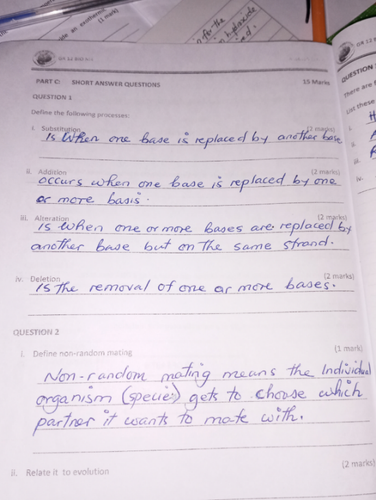 (1 mark)
PART C: SHORT ANSWER QUESTIONS 15 Marks
QUESTION 1
Define the following processes:
i. Substitution (2 marks)
is When one base is replaced by another base
ii. Addition (2 marks)
occurs when one base is replaced by one
or more basis.
iii. Alteration (2 marks)
is when one or more bases are replaced by
another base but on the same strand.
iv. Deletion (2 marks)
is the removal of one or more bases.
QUESTION 2
i. Define non-random mating (1 mark)
Non-random mating means the Individual
organism (species) gets to choose which
partner it wants to mate with.
ii. Relate it to evolution (2 marks)
QUESTION